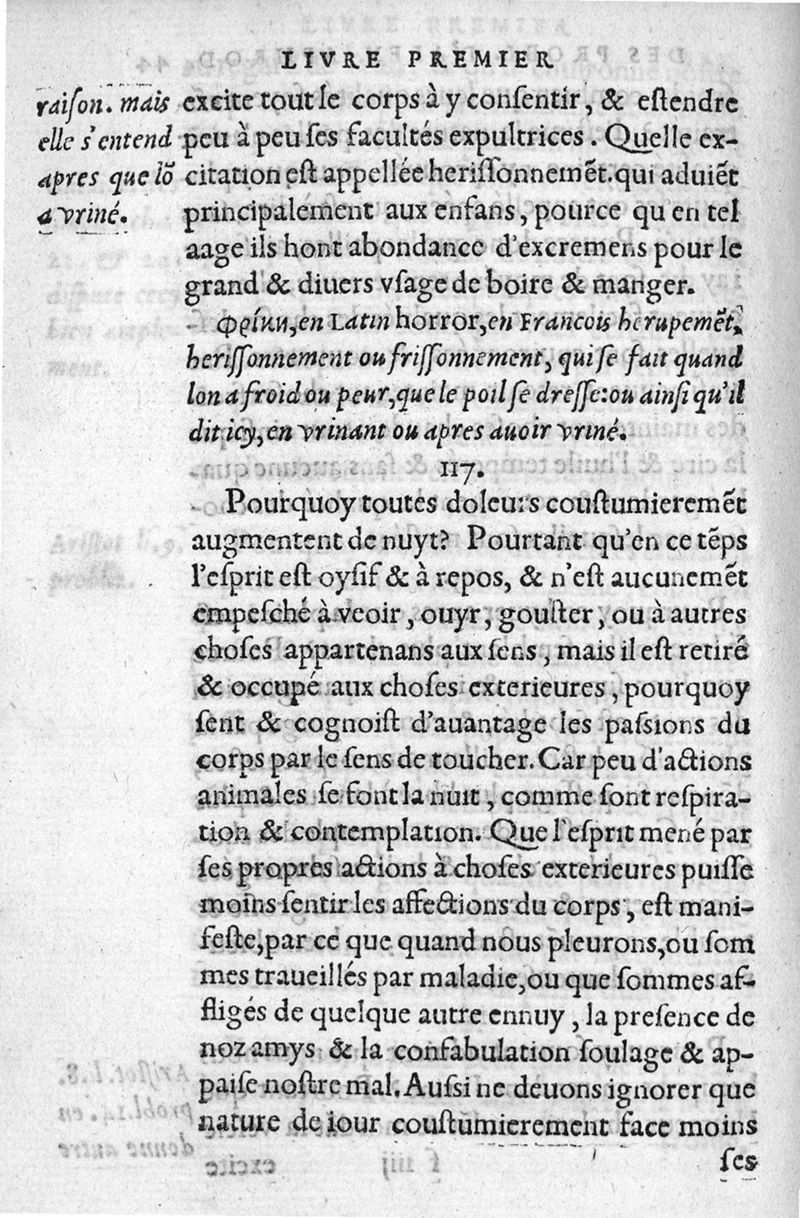 LIVRE PREMIER
raiſon. mais
elle s'entend
apres que lõ
a vriné.
excite tout le corps à y conſentir, & eſtendre
peu à peu ſes facultés expultrices. Quelle ex-
citation eſt appellée heriſſonnemẽt. qui aduiẽt
principalement aux enfans, pource qu'en tel
aage ils hont abondance d'excremens pour le
grand & diuers vſage de boire & manger.
Φρίκη, en Latin horror, en Francois herupemẽt,
heriſſonnement ou friſſonnement, qui ſe fait quand
lon a froid ou peur, que le poil ſe dreſſe: ou ainſi qu'il
dit icy, en vrinant ou apres auoir vriné.
117.
Pourquoy toutes doleurs couſtumieremẽt
augmentent de nuyt? Pourtant qu'en ce tẽps
l'eſprit eſt oyſif & à repos, & n'eſt aucunemẽt
empeſché à veoir, ouyr, gouſter, ou à autres
choſes appartenans aux ſens, mais il eſt retiré
& occupé aux choſes exterieures, pourquoy
ſent & cognoiſt d'auantage les paſsions du
corps par le ſens de toucher. Car peu d'actions
animales ſe font la nuit, comme ſont reſpira-
tion & contemplation. Que l'eſprit mené par
ſes propres actions à choſes exterieures puiſſe
moins ſentir les affections du corps, eſt mani-
feſte, par ce que quand nous pleurons, ou ſom
mes traueillés par maladie, ou que ſommes af-
fligés de quelque autre ennuy, la preſence de
noz amys & la confabulation ſoulage & ap-
paiſe noſtre mal. Auſſi ne deuons ignorer que
nature de iour couſtumierement face moins
ſes